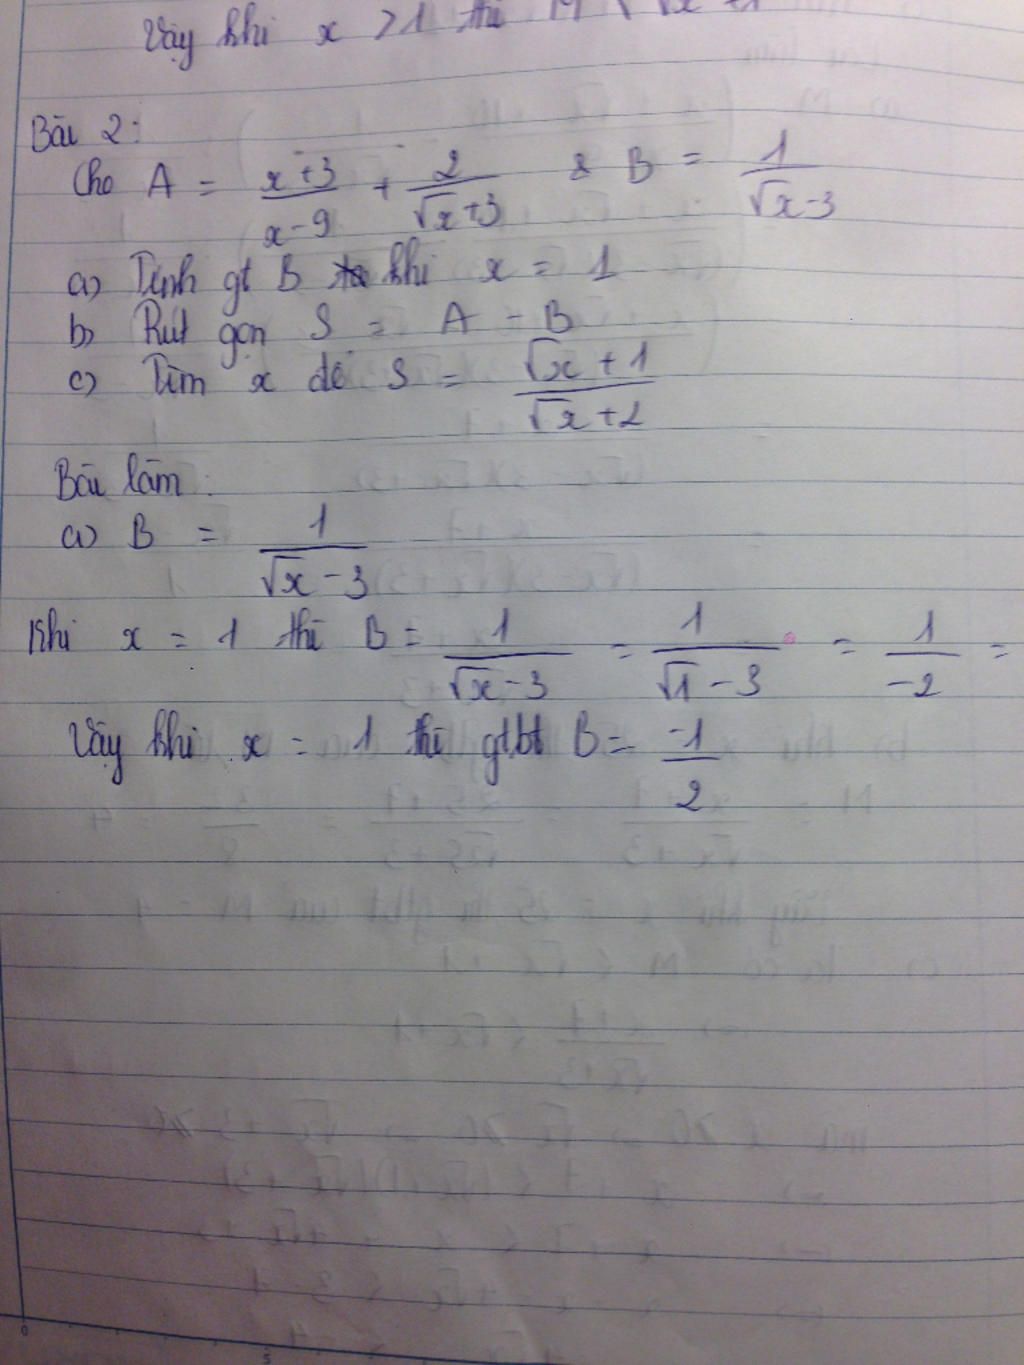 Vậy khi x > 1 thì M < √x + 1
Bài 2:
Cho A = (x+3)/(x-9) + 2/(√x+3) & B = 1/(√x-3)
a) Tính gt B khi x = 1
b) Rút gọn S = A - B
c) Tìm x để S = (√x+1)/(√x+2)
Bài làm:
a) B = 1/(√x-3)
Khi x = 1 thì B = 1/(√x-3) = 1/(√1-3) = 1/-2 =
Vậy khi x = 1 thì gtbt B = -1/2
0
5